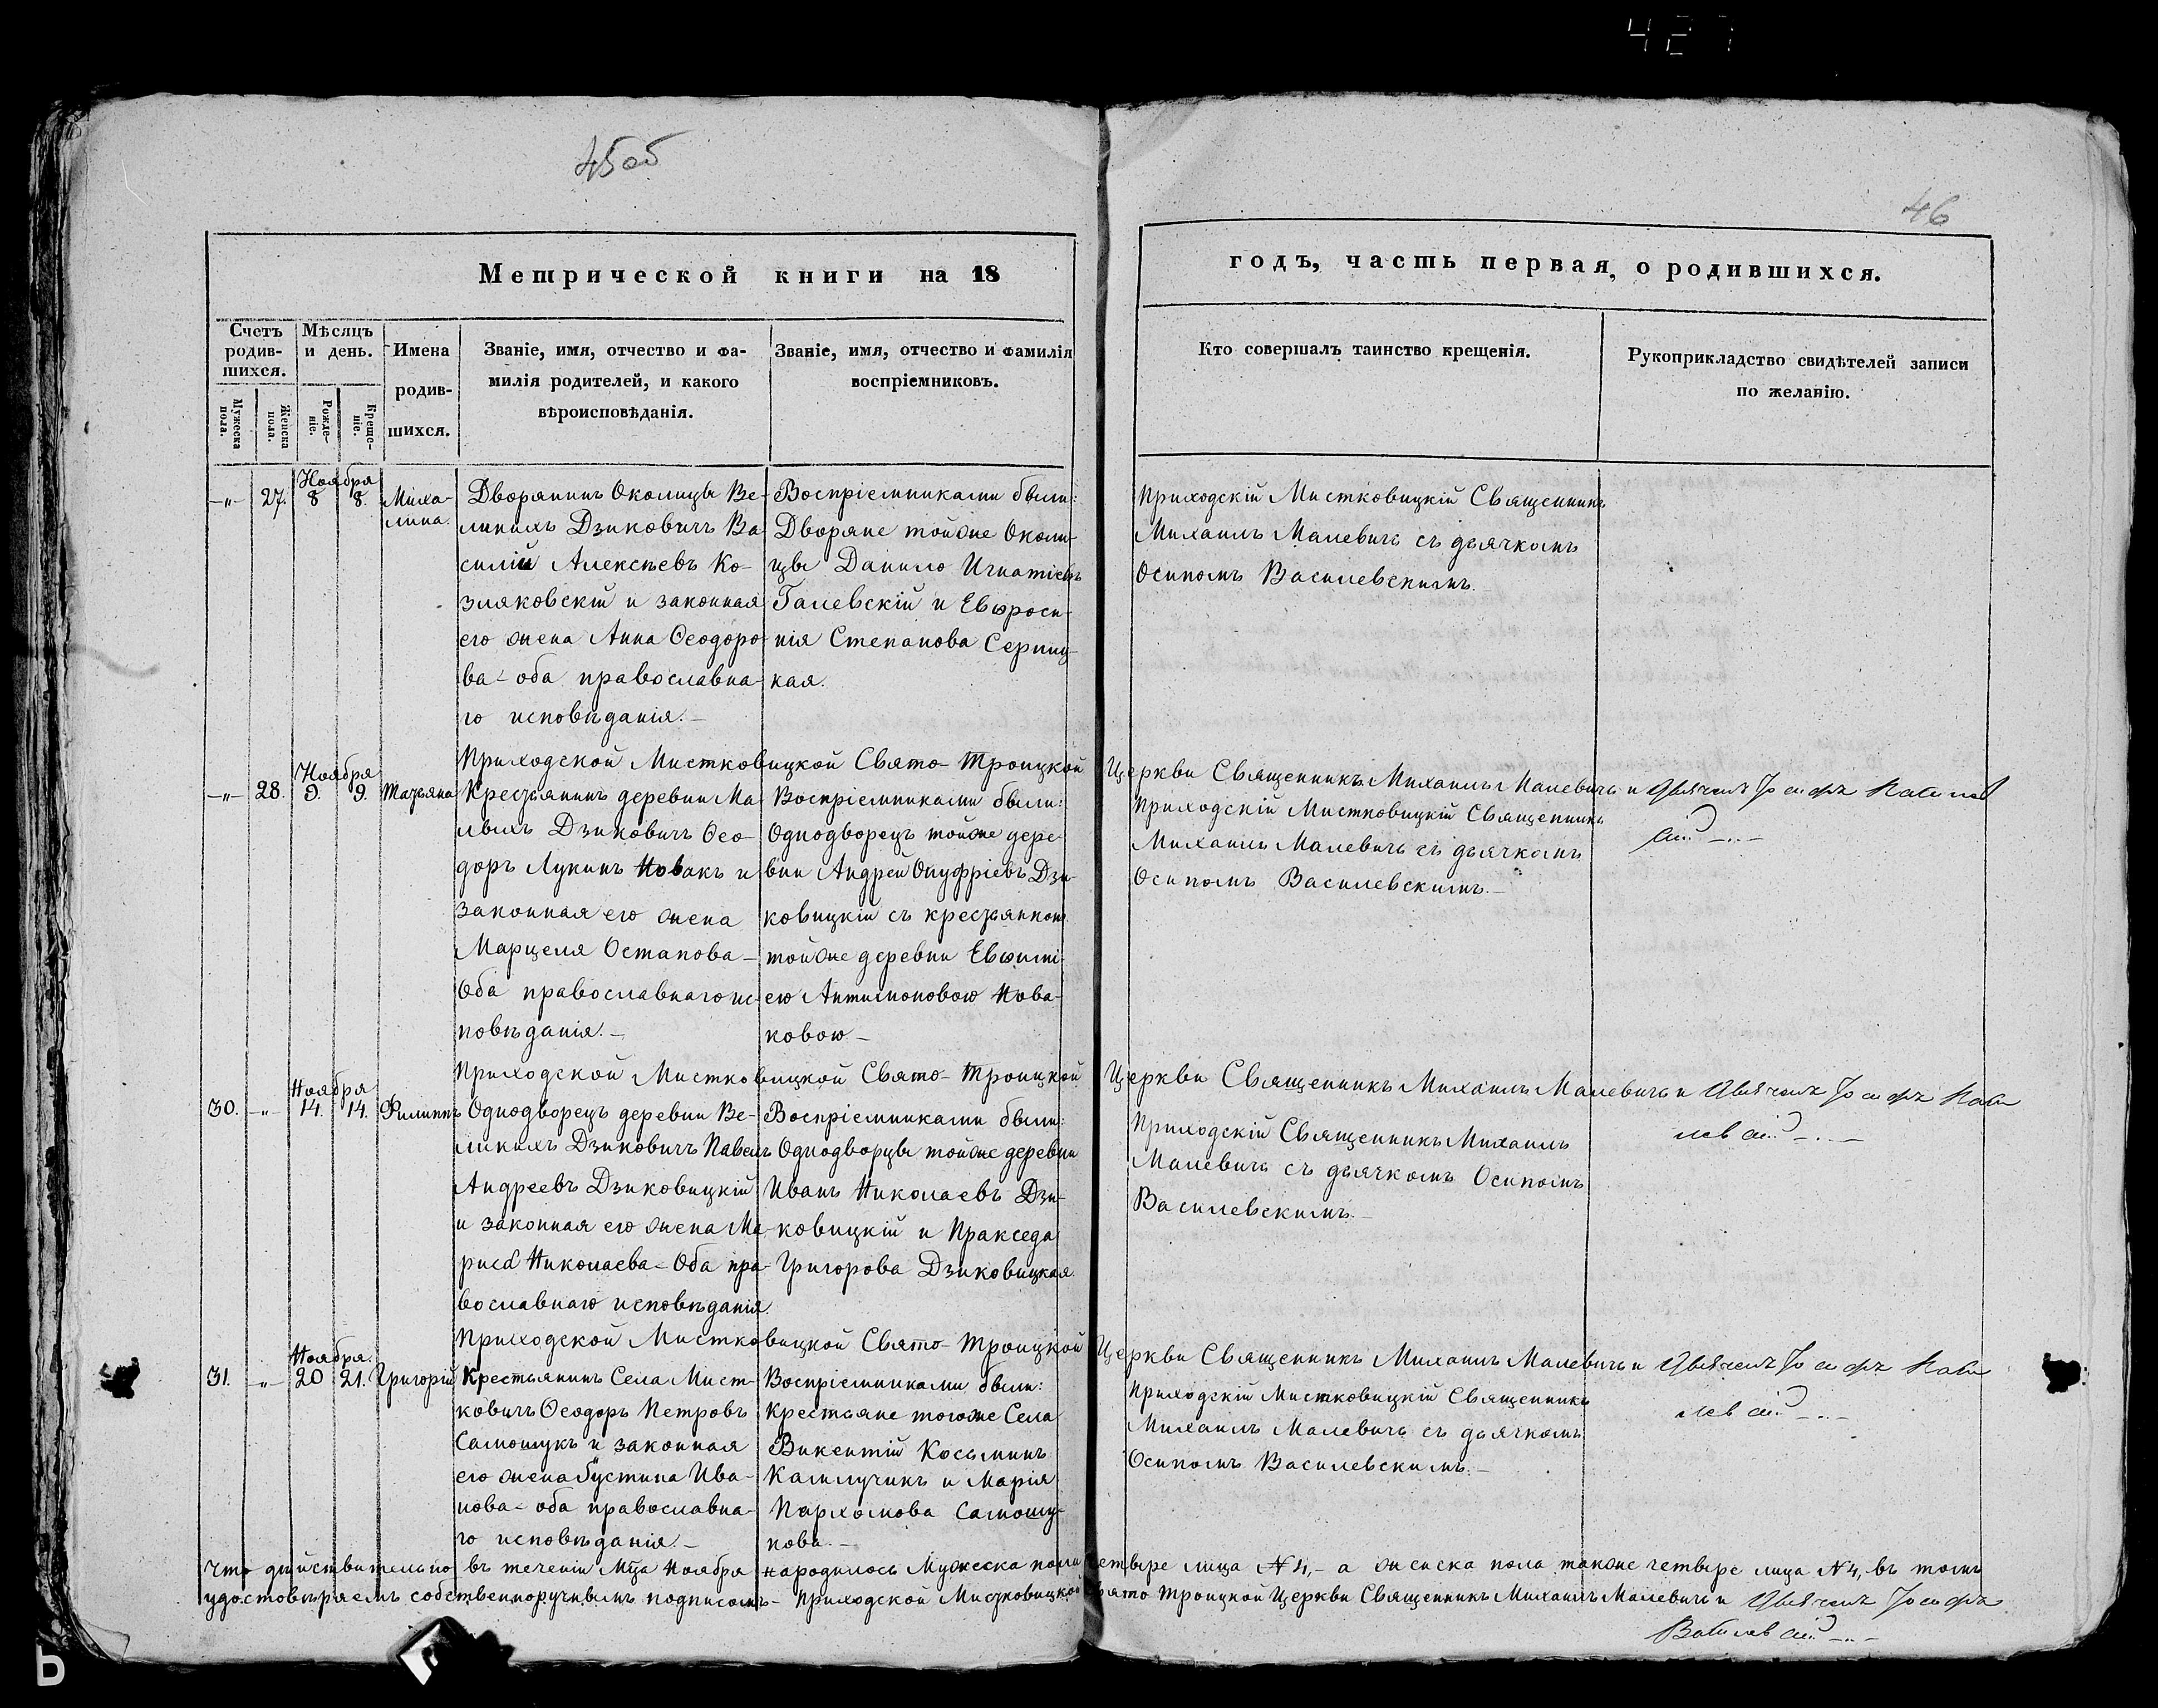 427
45об
46
Метрической книги на 18
годъ, часть первая, о родившихся.
Счетъ родив-шихся.
Мужеска пола.
Женска пола.
Мѣсяцъ и день.
Рожде-ніе.
Креще-ніе.
Имена
родив-
шихся.
Званіе, имя, отчество и фа-
милія родителей, и какого
вѣроисповѣданія.
Званіе, имя, отчество и фамилія
воспріемниковъ.
Кто совершалъ таинство крещенія.
Рукоприкладство свидѣтелей записи
по желанію.
Ноября
-"- 27. 8 8.
Миха-
лина.
Дворянинъ Околицы Ве-
ликихъ Дзиковичъ Ва
силій Алексѣевъ Ко-
зляковскій и законная
его жена Анна Ѳеодоро-
ва - оба православна-
го исповѣданія. -
Воспріемниками были:
Дворяне тойже Околи-
цы Данило Игнатіевъ
Галевскій и Евѳроси-
нія Степанова Серниц-
кая.
Приходскій Мистковицкій Священникъ
Михаилъ Малевичъ съ дьячкомъ
Осипомъ Василевскимъ.
Приходской Мистковицкой Свято-Троицкой Церкви Священникъ Михаилъ Малевичъ и Дьячекъ Іосифъ Василев
скій -"-
Ноября
-"- 28. 9. 9.
Татьяна
Крестьянинъ деревни Ма-
лыхъ Дзиковичъ Ѳео-
доръ Лукинъ Новакъ и
законная его жена
Марцеля Остапова -
Оба православнаго ис-
повѣданія. -
Воспріемниками были:
Однодворецъ тойже дере-
вни Андрей Онуфріевъ Дзи-
ковицкій съ крестьянкою
тойже деревни Евѳимі-
ею Антимоновою Нова-
ковою -
Приходскій Мистковицкій Священникъ
Михаилъ Малевичъ съ дьячкомъ
Осипомъ Василевскимъ. -
Приходской Мистковицкой Свято-Троицкой Церкви Священникъ Михаилъ Малевичъ и Дьячекъ Іосифъ Васи
левскій -"-
Ноября
30. -"- 14. 14.
Филиппъ
Однодворецъ деревни Ве-
ликихъ Дзиковичъ Павелъ
Андреевъ Дзиковицкій
и законная его жена Ма-
рися Николаева - Оба пра-
вославнаго исповѣданія.
Воспріемниками были:
Однодворцы тойже деревни
Иванъ Николаевъ Дзи-
ковицкій и Пракседа
Григорова Дзиковицкая.
Приходскій Священникъ Михаилъ
Малевичъ съ дьячкомъ Осипомъ
Василевскимъ. -
Приходской Мистковицкой Свято-Троицкой Церкви Священникъ Михаилъ Малевичъ и Дьячекъ Іосифъ Васи
левскій -"-
Ноября.
31. -"- 20 21.
Григорій
Крестьянинъ Села Мист-
ковичъ Ѳеодоръ Петровъ
Самошукъ и законная
его жена Устина Ива-
нова - оба православна-
го исповѣданія. -
Воспріемниками были:
Крестьяне тогоже Села
Викентій Косьминъ
Калилучикъ и Марія
Пархомова Самошу-
кова. -
Приходскій Мистковицкій Священникъ
Михаилъ Малевичъ съ дьячкомъ
Осипомъ Василевскимъ. -
Что дѣйствительно въ теченіи Мца Ноября народилось Мужеска пола четыре лица №4, - а женска пола также четыре лица №4, въ томъ
удостовѣряемъ собственноручнымъ подписомъ - Приходской Мистковицкой Свято Троицкой Церкви Священникъ Михаилъ Малевичъ и Дьячекъ Іосифъ
Василевскій -"-